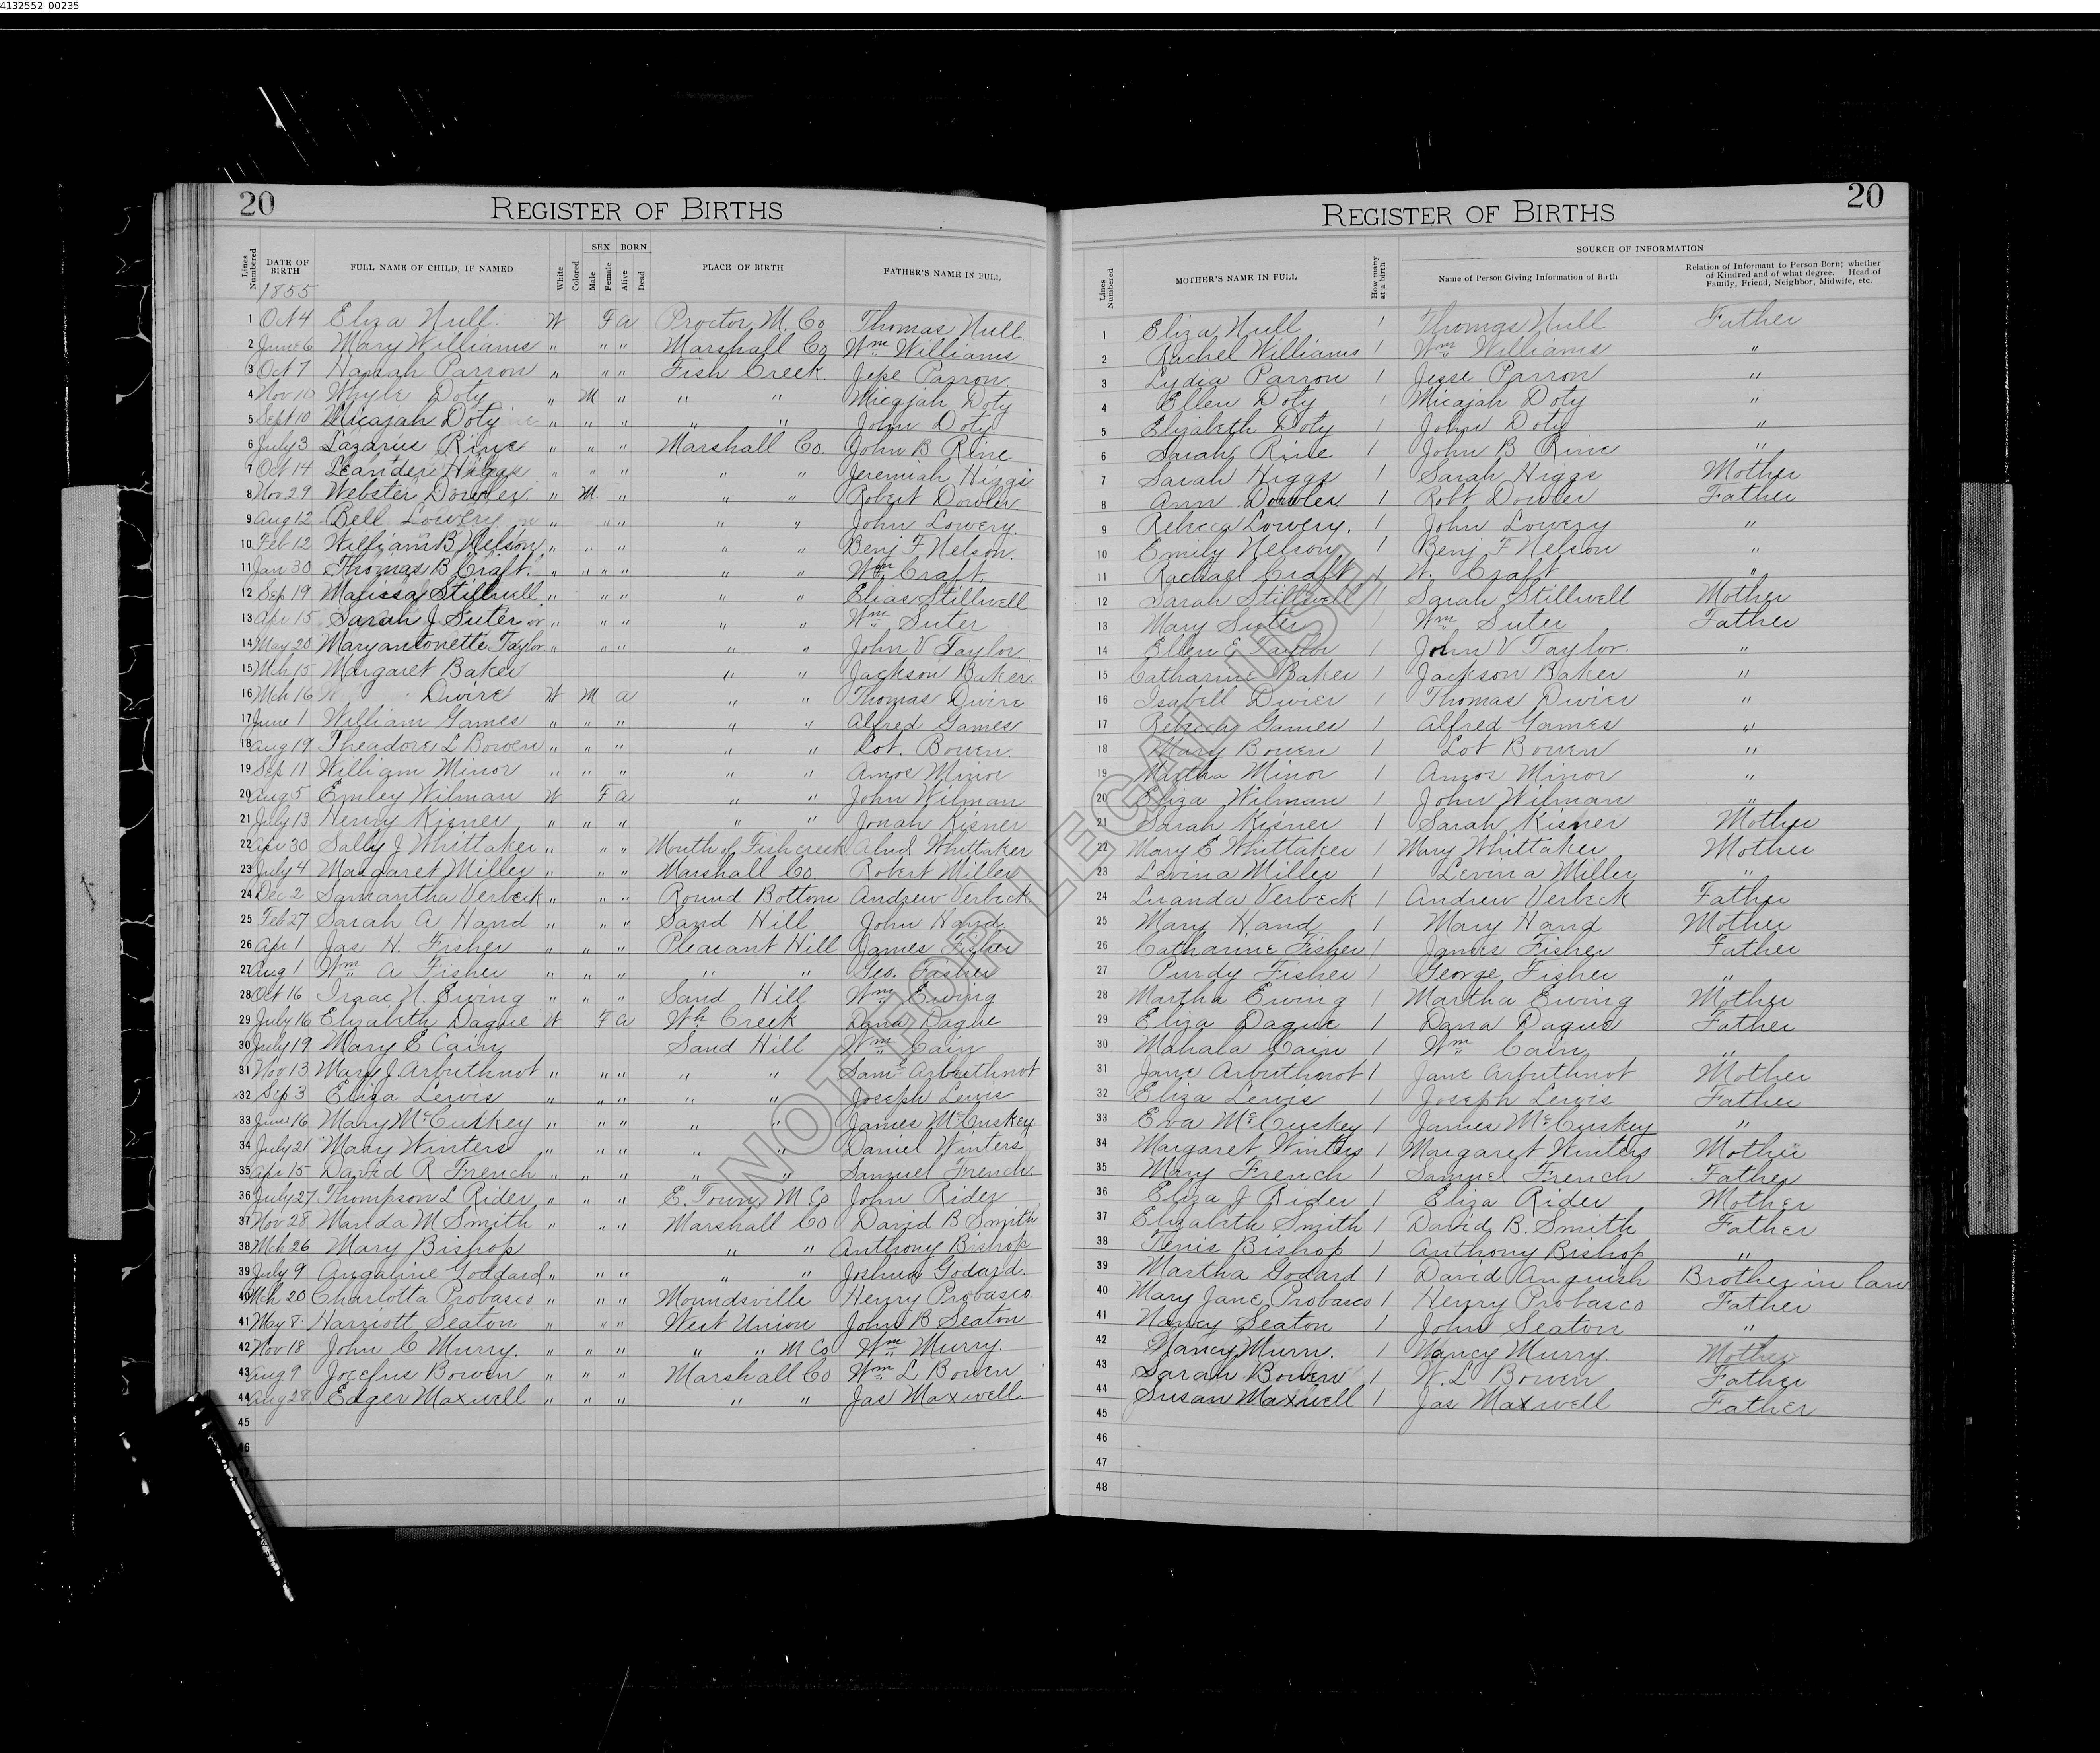 4132552_00235
20 REGISTER OF BIRTHS
Lines Numbered DATE OF BIRTH FULL NAME OF CHILD, IF NAMED White Colored SEX Male Female BORN Alive Dead PLACE OF BIRTH FATHER'S NAME IN FULL
1855
1 Oct 4 Eliza Null W F a Proctor, M. Co Thomas Null
2 June 6 Mary Williams " " " Marshall Co Wm Williams
3 Oct 7 Hannah Parron " " " Fish Creek. Jesse Parron
4 Nov 10 Whyle Doty " M " " " Micajah Doty
5 Sept 10 Micajah Doty " " " " " John Doty
6 July 3 Lazarus Rine " " " Marshall Co. John B Rine
7 Oct 14 Leander Higgs " " " " " Jeremiah Higgs
8 Nov 29 Webster Dowler " M " " " Robert Dowler
9 Aug 12 Bell Lowery " " " " " John Lowery.
10 Feb 12 William B Nelson " " " " " Benj F. Nelson.
11 Jan 30 Thomas B Craft. " " " " " " Wm Craft.
12 Sep 19 Malissa Stillwell " " " " " Elias Stillwell
13 Apr 15 Sarah J Suter " " " " " Wm Suter
14 May 20 Maryantonette Taylor " " " " " John V Taylor.
15 Mch 15 Margaret Baker " " Jackson Baker.
16 Mch 16 Dwire W M a " " Thomas Dwire
17 June 1 William Games " " " " " Alfred Games
18 Aug 19 Theadore L Bowen " " " " " Lot. Bowen.
19 Sep 11 William Minor " " " " " Amos Minor
20 Aug 5 Emley Wilman W F a " " John Wilman
21 July 13 Henry Kisner " " " " " Jonah Kisner
22 Apr 30 Sally J Whittaker " " " Mouth of Fish creek Whittaker
23 July 4 Margaret Miller " " " Marshall Co. Robert Miller
24 Dec 2 Samantha Verbeck " " " Round Bottom Andrew Verbeck
25 Feb 27 Sarah A Hand " " " Sand Hill John Hand
26 Apr 1 Jas H. Fisher " " " Pleasant Hill James Fisher
27 Aug 1 Wm A Fisher " " " " " Geo. Fisher
28 Oct 16 Isaac N. Ewing " " " Sand Hill Wm Ewing
29 July 16 Elizabeth Dague W F a Wh Creek Dana Dague
30 July 19 Mary E Cain Sand Hill Wm Cain
31 Nov 13 Mary J Arbuthnot " " " " " Saml Arbuthnot
32 Sep 3 Eliza Lewis " " " " " Joseph Lewis
33 June 16 Mary McCuskey " " " " " James McCuskey
34 July 21 Mary Winters " " " " " Daniel Winters
35 Apr 15 David R French " " " " " Samuel French.
36 July 27 Thompson L Rider " " " E. Town, M. Co John Rider
37 Nov 28 Manda M Smith " " " Marshall Co David B Smith
38 Mch 26 Mary Bishop " " Anthony Bishop
39 July 9 Angaline Goddard " " " " " Joshua Godard.
40 Mch 20 Charlotta Probasco " " " Moundsville Henry Probasco
41 May 8 Harriott Seaton " " " West Union John B Seaton
42 Nov 18 John C Murry. " " " " " M Co Wm Murry.
43 Aug 9 Jocefus Bowen " " " Marshall Co Wm L Bowen
44 Aug 28 Edger Maxwell " " " " " Jas Maxwell.
45
46
REGISTER OF BIRTHS 20
Lines Numbered MOTHER'S NAME IN FULL How many at a birth SOURCE OF INFORMATION
Name of Person Giving Information of Birth Relation of Informant to Person Born; whether of Kindred and of what degree. Head of Family, Friend, Neighbor, Midwife, etc.
1 Eliza Null 1 Thomas Null Father
2 Rachel Williams 1 Wm Williams "
3 Lydia Parron 1 Jesse Parron "
4 Ellen Doty 1 Micajah Doty "
5 Elizabeth Doty 1 John Doty "
6 Sarah Rine 1 John B Rine "
7 Sarah Higgs 1 Sarah Higgs Mother
8 Ann Dowler 1 Robt Dowler Father
9 Rebecca Lowery. 1 John Lowery "
10 Emily Nelson 1 Benj F Nelson "
11 Rachael Craft 1 W. Craft "
12 Sarah Stillwell 1 Sarah Stillwell Mother
13 Mary Suter 1 Wm Suter Father
14 Ellen E Taylor 1 John V Taylor. "
15 Catharine Baker 1 Jackson Baker "
16 Isabell Dwier 1 Thomas Dwier "
17 Rebecca Games 1 Alfred Games "
18 Mary Bowen 1 Lot Bowen "
19 Martha Minor 1 Amos Minor "
20 Eliza Wilman 1 John Wilman "
21 Sarah Kisner 1 Sarah Kisner Mother
22 Mary E Whittaker 1 Mary Whittaker Mother
23 Levina Miller 1 Levina Miller "
24 Luanda Verbeck 1 Andrew Verbeck Father
25 Mary Hand 1 Mary Hand Mother
26 Catharine Fisher 1 James Fisher Father
27 Purdy Fisher 1 George Fisher "
28 Martha Ewing 1 Martha Ewing Mother
29 Eliza Dague 1 Dana Dague Father
30 Mahala Cain 1 Wm Cain "
31 Jane Arbuthnot 1 Jane Arbuthnot Mother
32 Eliza Lewis 1 Joseph Lewis Father
33 Eva McCuskey 1 James McCuskey "
34 Margaret Winters 1 Margaret Winters Mother
35 Mary French 1 Samuel French Father
36 Eliza J Rider 1 Eliza Rider Mother
37 Elizabeth Smith 1 David B. Smith Father
38 Tenis Bishop 1 Anthony Bishop "
39 Martha Godard 1 David Anguish Brother in law
40 Mary Jane Probasco 1 Henry Probasco Father
41 Nancy Seaton 1 John Seaton "
42 Nancy Murry. 1 Nancy Murry. Mother
43 Sarah Bowen 1 W. L Bowen Father
44 Susan Maxwell 1 Jas Maxwell Father
45
46
47
48
NOT FOR LEGAL USE